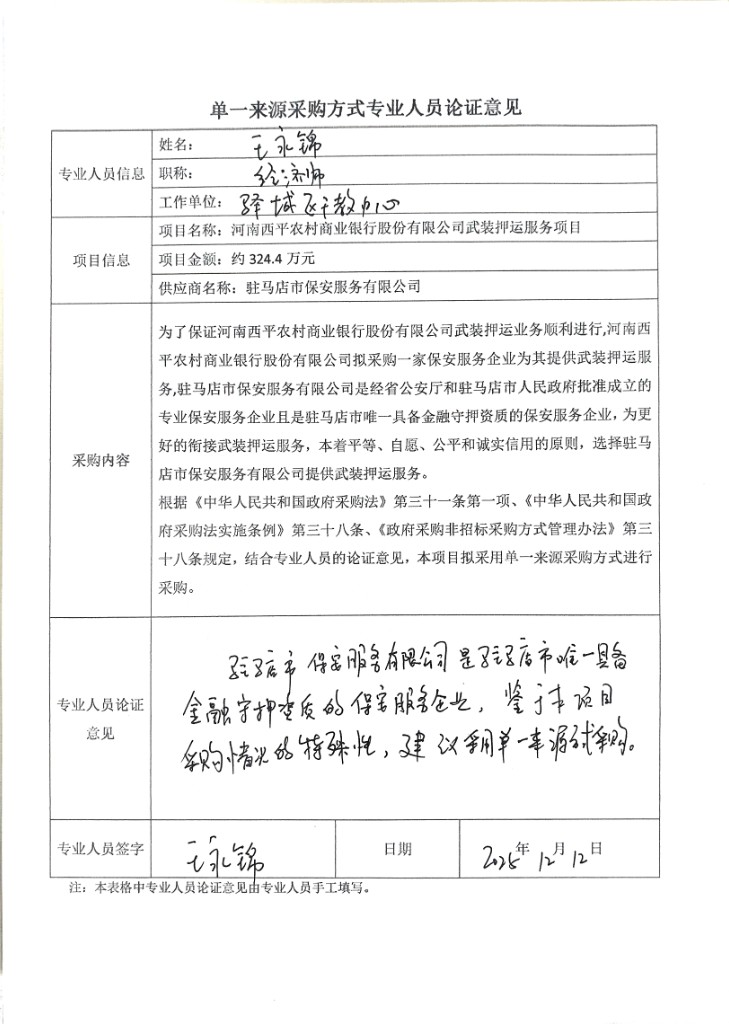 单一来源采购方式专业人员论证意见
专业人员信息
姓名： 王永锦
职称： 经济师
工作单位： 驿城区干教中心
项目信息
项目名称：河南西平农村商业银行股份有限公司武装押运服务项目
项目金额：约 324.4 万元
供应商名称：驻马店市保安服务有限公司
采购内容
为了保证河南西平农村商业银行股份有限公司武装押运业务顺利进行,河南西
平农村商业银行股份有限公司拟采购一家保安服务企业为其提供武装押运服
务,驻马店市保安服务有限公司是经省公安厅和驻马店市人民政府批准成立的
专业保安服务企业且是驻马店市唯一具备金融守押资质的保安服务企业，为更
好的衔接武装押运服务，本着平等、自愿、公平和诚实信用的原则，选择驻马
店市保安服务有限公司提供武装押运服务。
根据《中华人民共和国政府采购法》第三十一条第一项、《中华人民共和国政
府采购法实施条例》第三十八条、《政府采购非招标采购方式管理办法》第三
十八条规定，结合专业人员的论证意见，本项目拟采用单一来源采购方式进行
采购。
专业人员论证
意见
驻马店市保安服务有限公司是驻马店市唯一具备
金融守押资质的保安服务企业，鉴于本项目
采购情况的特殊性，建议采用单一来源方式采购。
专业人员签字
王永锦
日期
2025年12月12日
注：本表格中专业人员论证意见由专业人员手工填写。